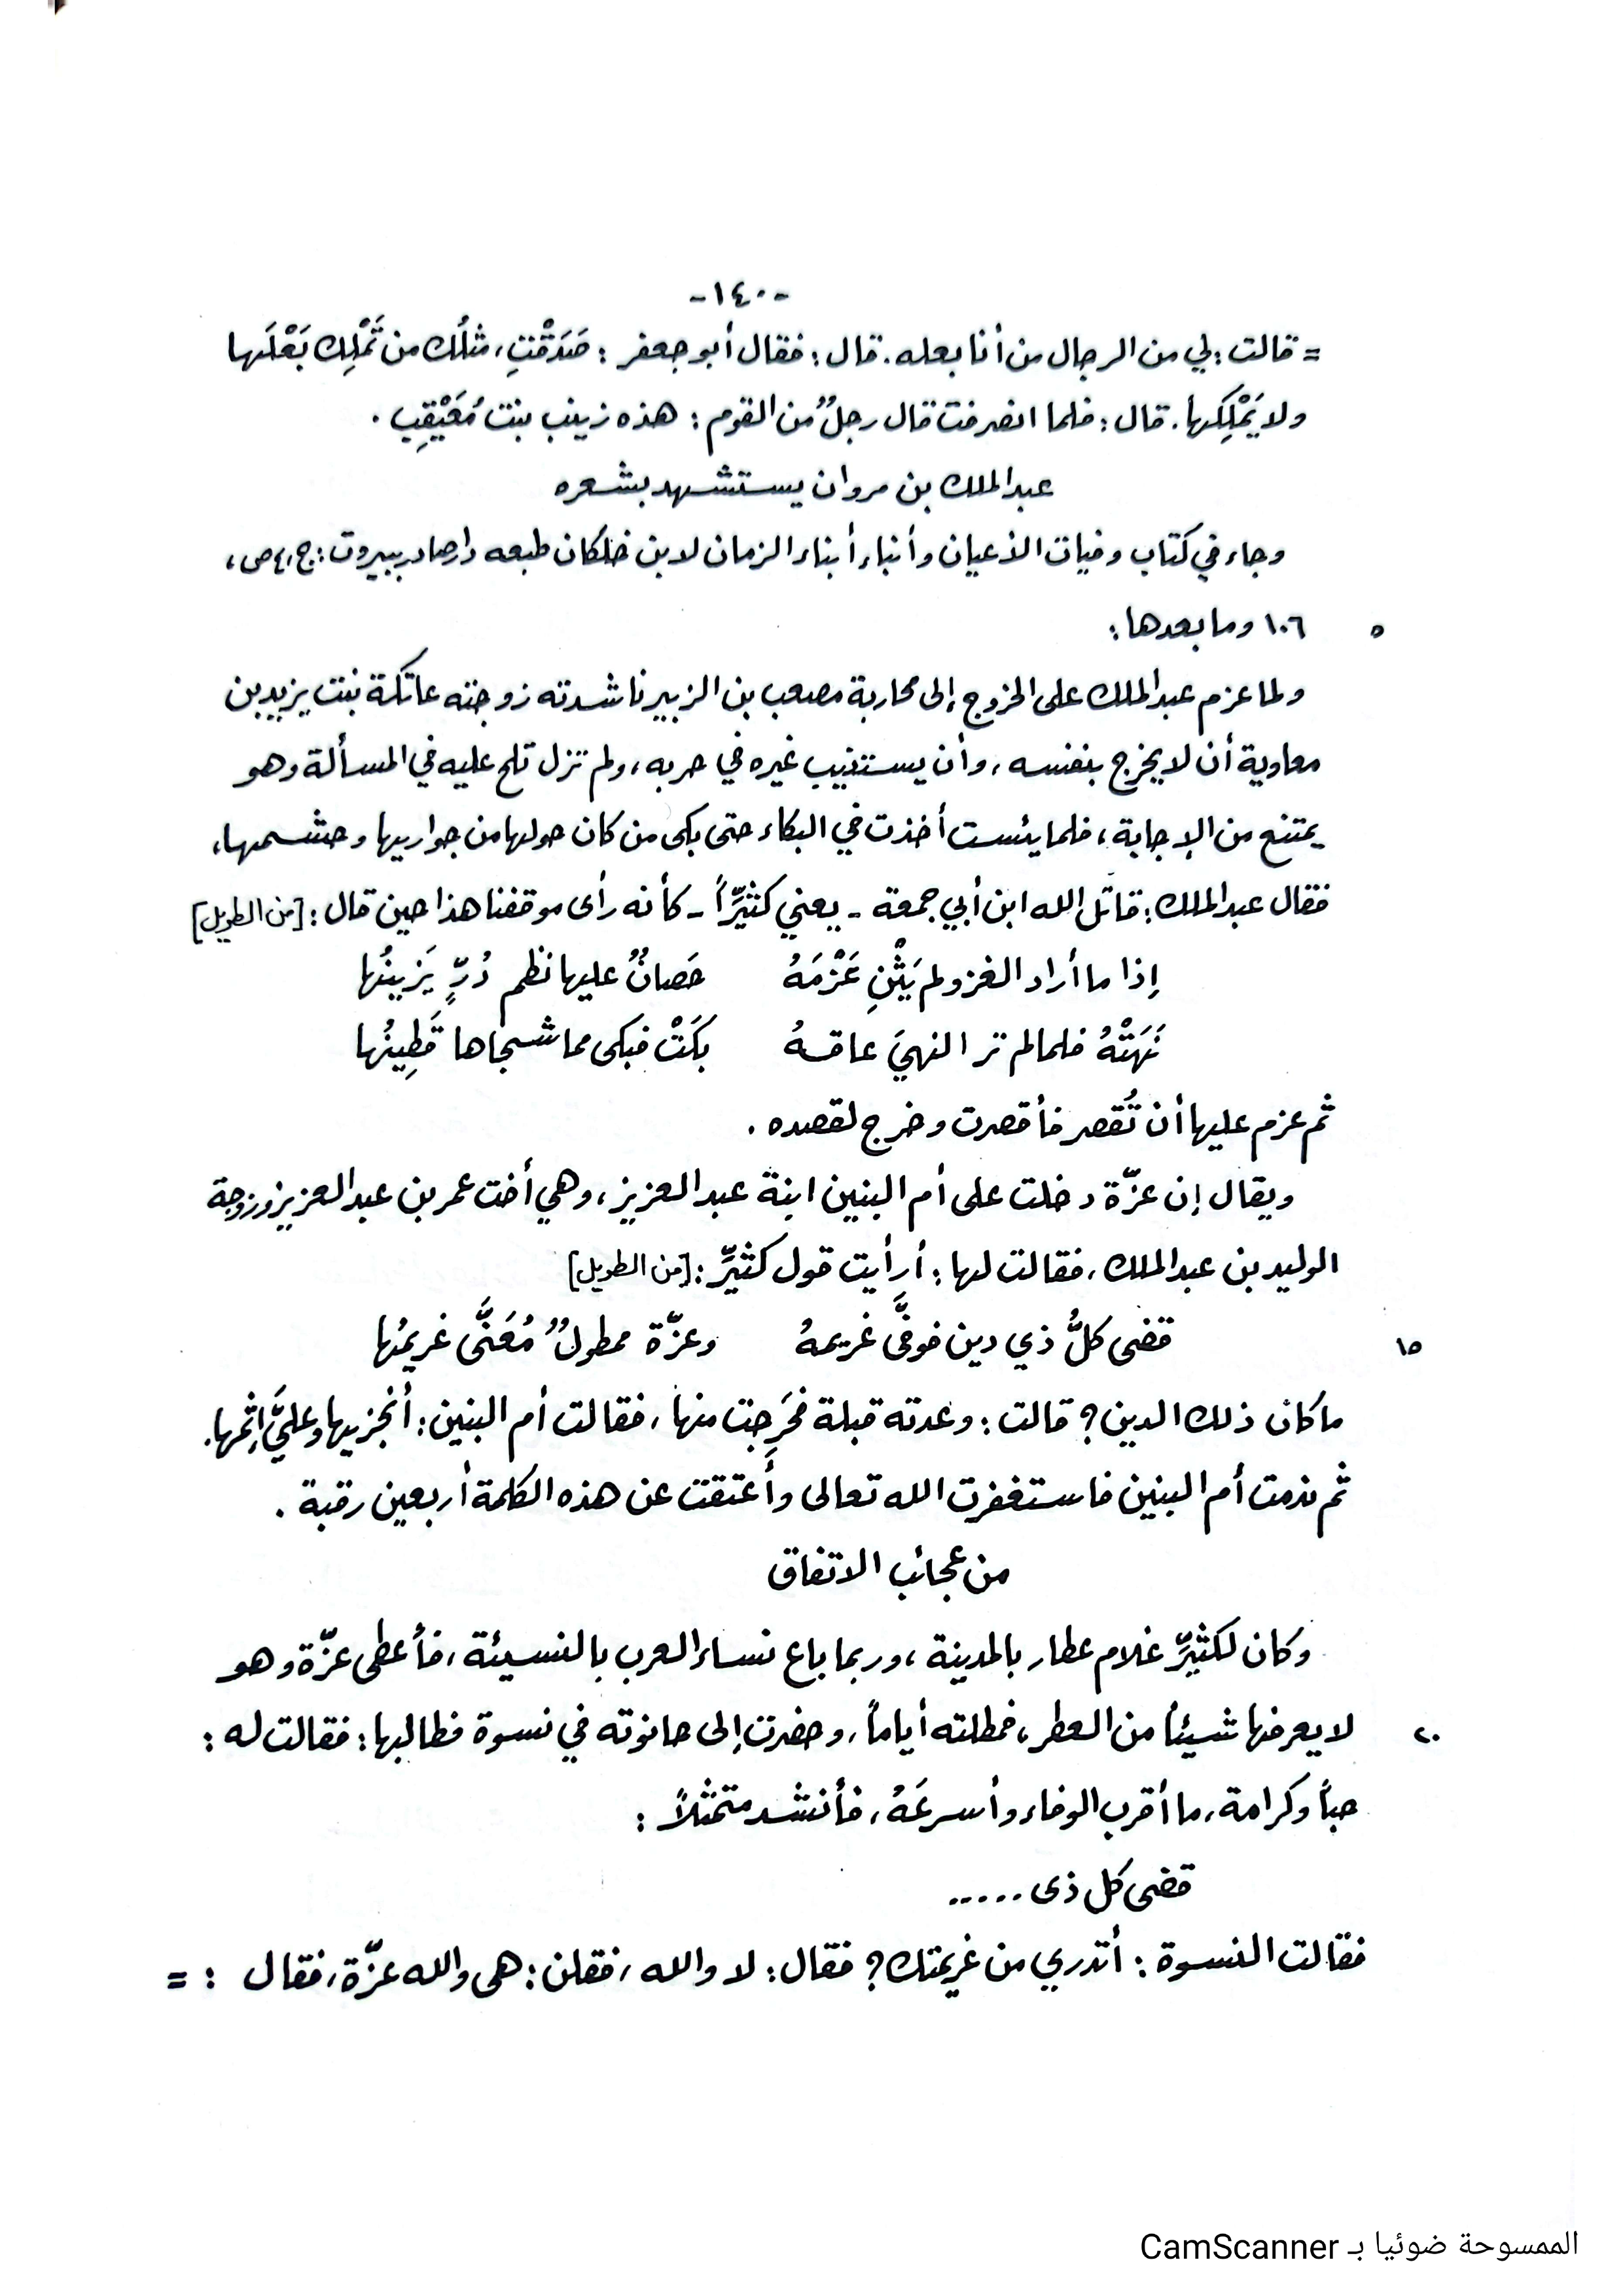 -١٤٠-
= قالت: لي من الرجال من أنا بعله. قال: فقال أبو جعفر: صَدَقْتِ، مثلُك من تَمْلِك بَعْلَها
ولا يَمْلِكها. قال: فلما انصرفت قال رجلٌ من القوم: هذه زينب بنت مُعَيْقِب.
عبد الملك بن مروان يستشهد بشعره
وجاء في كتاب وفيات الأعيان وأنباء أبناء الزمان لابن خلكان طبعه دار صادر ببيروت: ج،٤ ص،
٥ ١٠٦ وما بعدها:
ولما عزم عبد الملك على الخروج إلى محاربة مصعب بن الزبير ناشدته زوجته عاتكة بنت يزيد بن
معاوية أن لا يخرج بنفسه، وأن يستنيب غيره في حربه، ولم تزل تلح عليه في المسألة وهو
يمتنع من الإجابة، فلما يئست أخذت في البكاء حتى بكى من كان حولها من جواريها وحشمها،
فقال عبد الملك: قاتل الله ابن أبي جمعة - يعني كثيِّراً - كأنه رأى موقفنا هذا حين قال: [من الطويل]
إذا ما أراد الغزو لم يَثْنِ عَزْمَهُ حَصانٌ عليها نظم دُرٍّ يَزينُها
نَهَتْهُ فلما لم تر النهيَ عاقهُ بَكَتْ فبكى مما شجاها قَطِينُها
ثم عزم عليها أن تُقصر فأقصرت وخرج لقصده.
ويقال إن عزّة دخلت على أم البنين ابنة عبد العزيز، وهي أخت عمر بن عبد العزيز وزوجة
الوليد بن عبد الملك، فقالت لها: أرأيت قول كثيِّر: [من الطويل]
١٥ قضى كلُّ ذي دين فوفَّى غريمهُ وعزّة ممطولٌ مُعَنَّى غريمُها
ما كان ذلك الدين؟ قالت: وعدته قبلة فحَرِجت منها، فقالت أم البنين: أنجزيها وعليَّ إثمها.
ثم ندمت أم البنين فاستغفرت الله تعالى وأعتقت عن هذه الكلمة أربعين رقبة.
من عجائب الاتفاق
وكان لكثيِّر غلام عطار بالمدينة، وربما باع نساء العرب بالنسيئة، فأعطى عزّة وهو
٢٠ لا يعرفها شيئاً من العطر، فمطلته أياماً، وحضرت إلى حانوته في نسوة فطالبها؛ فقالت له:
حباً وكرامة، ما أقرب الوفاء وأسرعَهُ، فأنشد متمثلاً:
قضى كل ذى .....
فقالت النسوة: أتدري من غريمتك؟ فقال: لا والله، فقلن: هى والله عزّة، فقال: =
الممسوحة ضوئيا بـ CamScanner